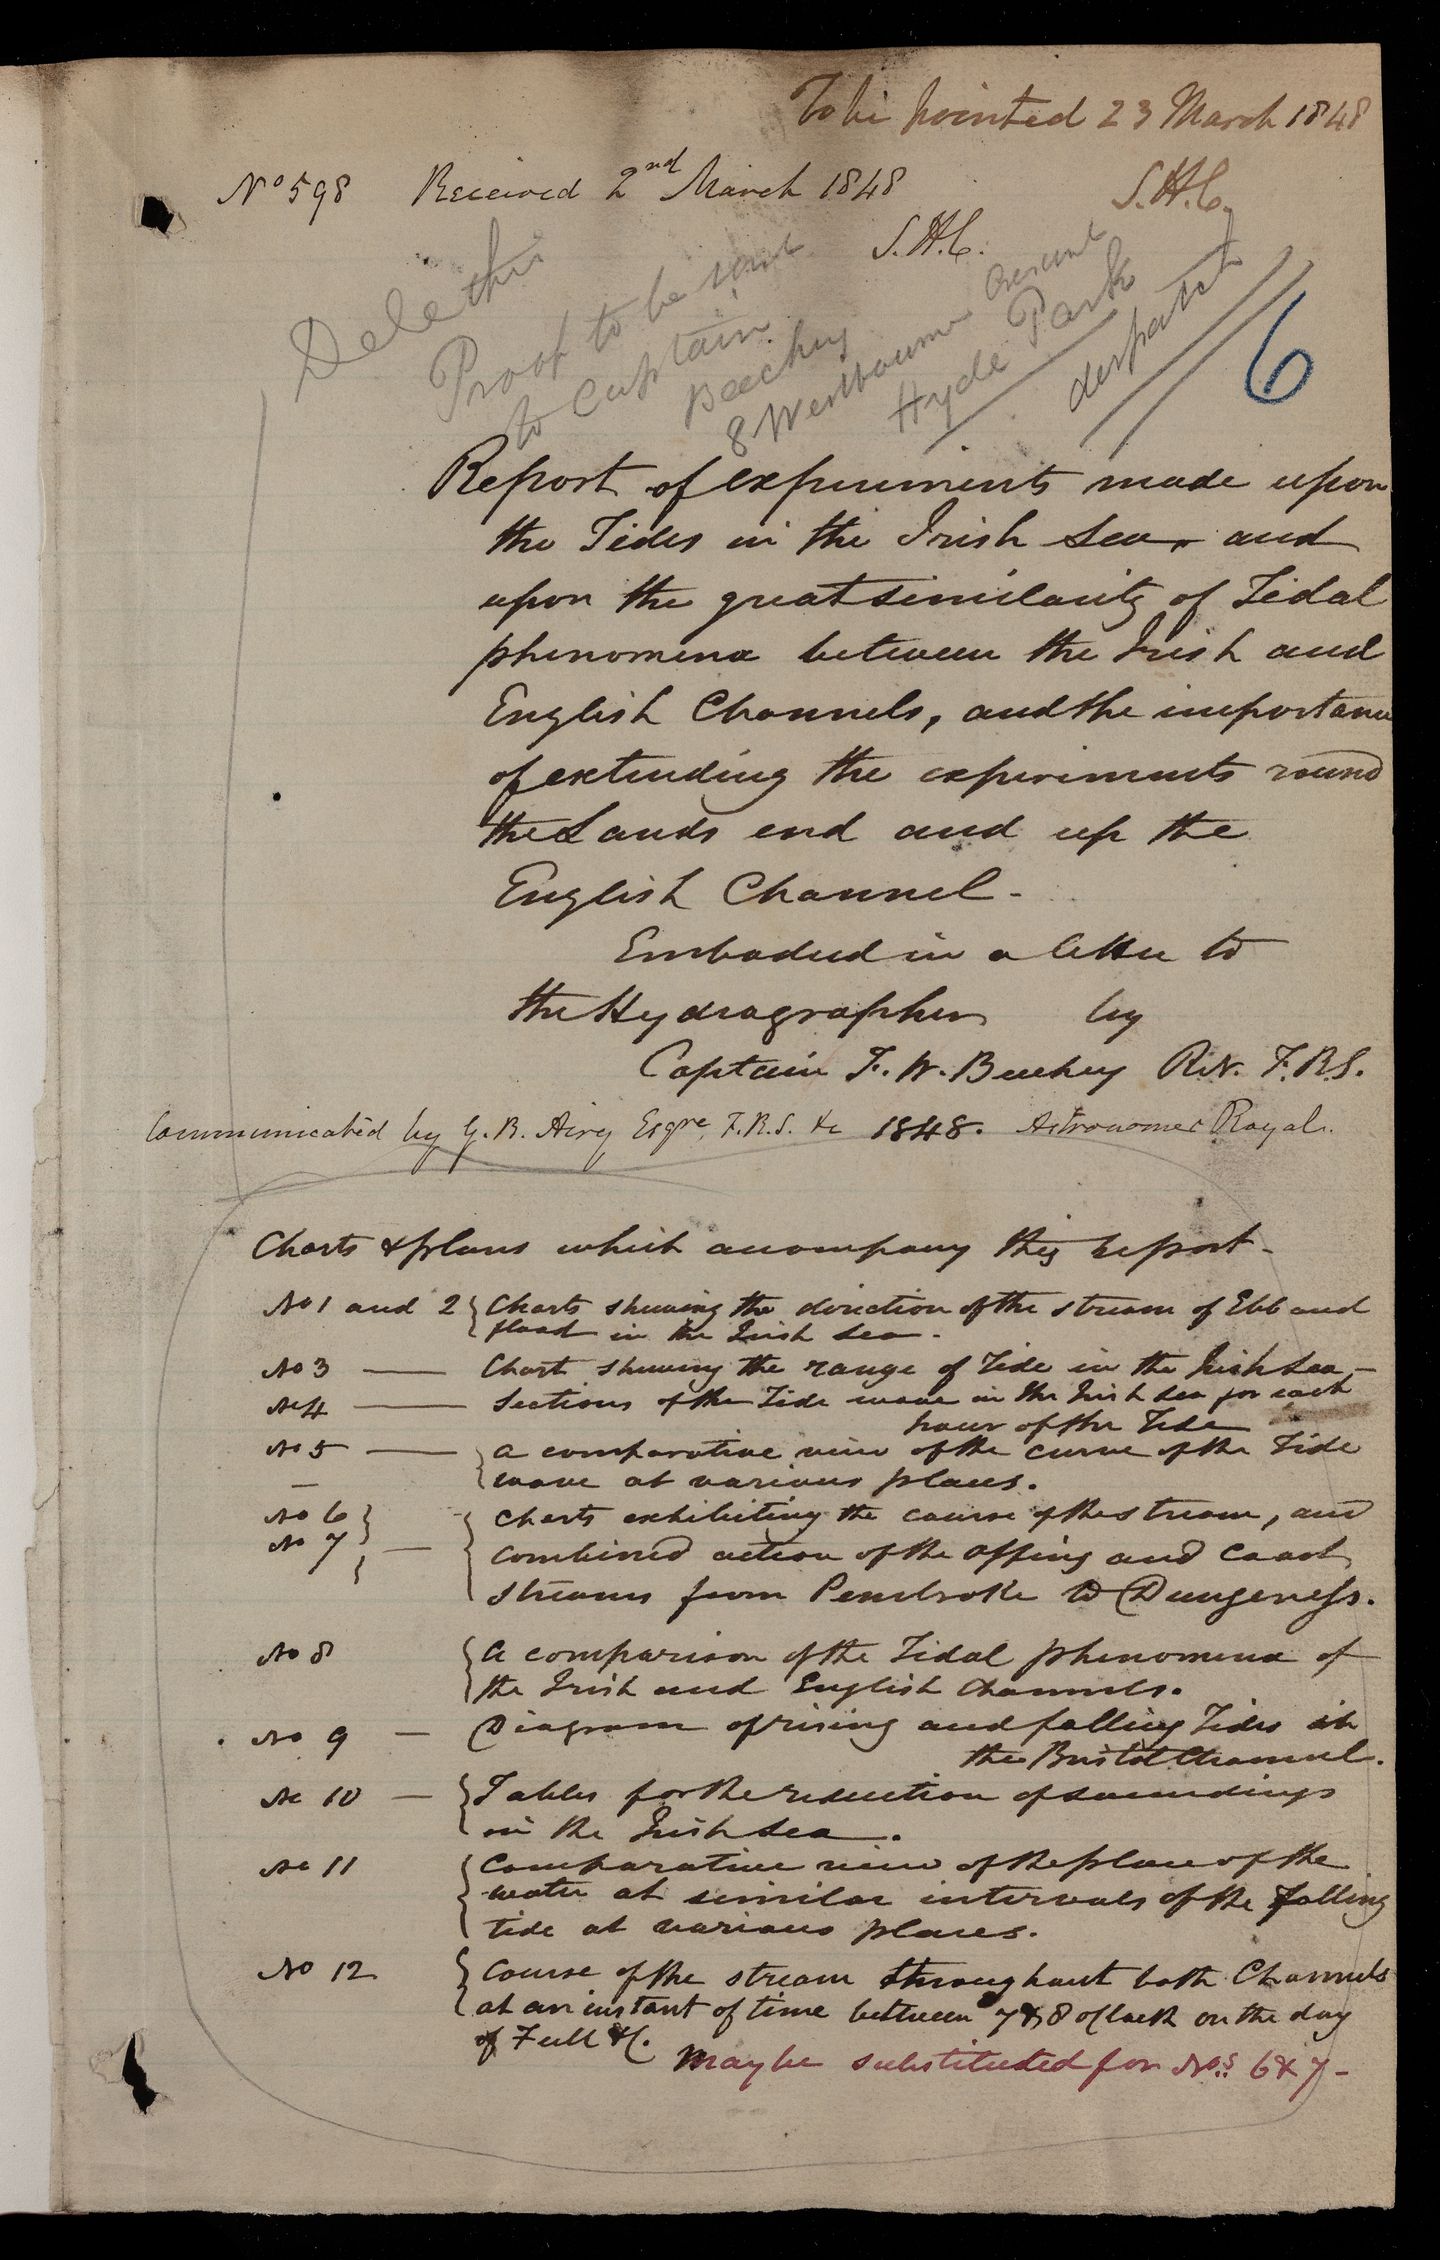 To be printed 23 March 1848
No 598 Received 2nd March 1848
S.H.C.
S.H.C.
Dele this
Proof to be sent
to Captain
Beechey
8 Westbourne Crescent
Hyde Park
despatch
6
Report of experiments made upon
the Tides in the Irish Sea, and
upon the great similarity of Tidal
phenomena between the Irish and
English Channels, and the importance
of extending the experiments round
the Lands end and up the
English Channel -
Embodied in a letter to
the Hydrographer by
Captain F. W. Beechey R.N. F.R.S.
Communicated by G. B. Airy Esqre, F.R.S. &c 1848. Astronomer Royal.
Charts & plans which accompany this report -
No 1 and 2 { Charts shewing the direction of the stream of Ebb and
flood in the Irish Sea -
No 3 — Chart shewing the range of Tide in the Irish Sea -
No 4 — Sections of the Tide wave in the Irish Sea for each
hour of the Tide
No 5 — { a comparative view of the curve of the Tide
wave at various places.
No 6 } { Charts exhibiting the course of the stream, and
No 7 } — combined action of the offing and coast
streams from Pembroke to Dungeness.
No 8 { A comparison of the Tidal phenomena of
the Irish and English Channels.
No 9 — Diagram of rising and falling Tides in
the Bristol Channel.
No 10 — { Tables for the reduction of soundings
in the Irish Sea.
No 11 { Comparative view of the place of the
water at similar intervals of the falling
tide at various places.
No 12 { Course of the stream throughout both Channels
at an instant of time between 7 & 8 o'clock on the day
of Full & C.
May be substituted for Nos. 6 & 7 -